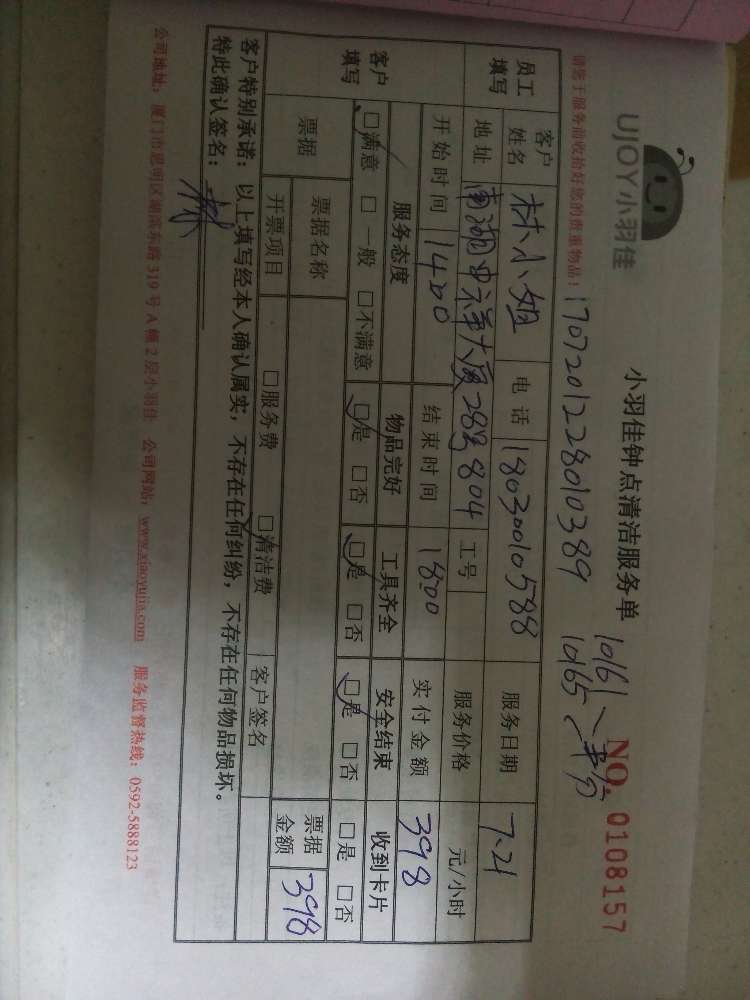 UJOY小羽佳
小羽佳钟点清洁服务单
1061
1065
NO. 0108157
请您于服务前收拾好您的贵重物品: 170720122801 0389
员工填写 客户姓名 林小姐 电话 18030010588 服务日期 7.21
地址 南湖中祥大厦28号804 工号 服务价格 元/小时
开始时间 1400 结束时间 1800 实付金额 398
客户填写 服务态度 物品完好 工具齐全 安全结束 收到卡片
□满意 □一般 □不满意 □是 □否 □是 □否 □是 □否 □是 □否
票据 票据名称 票据金额 398
开票项目 □服务费 □清洁费 客户签名
客户特别承诺:以上填写经本人确认属实,不存在任何纠纷,不存在任何物品损坏。
特此确认签名: 林
公司地址:厦门市思明区湖滨东路319号A幢2层小羽佳 公司网站:www.xiaoyujia.com 服务监督热线:0592-5888123